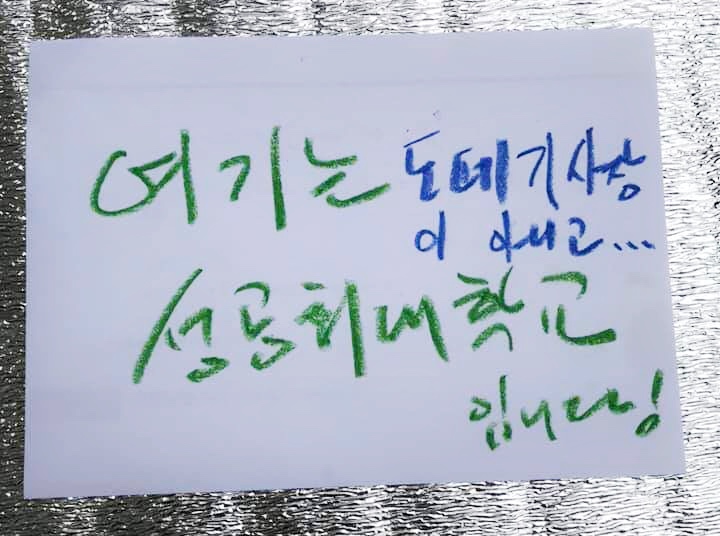 여기는 도떼기사장
이 아니고...
성공회대학교
입니다!